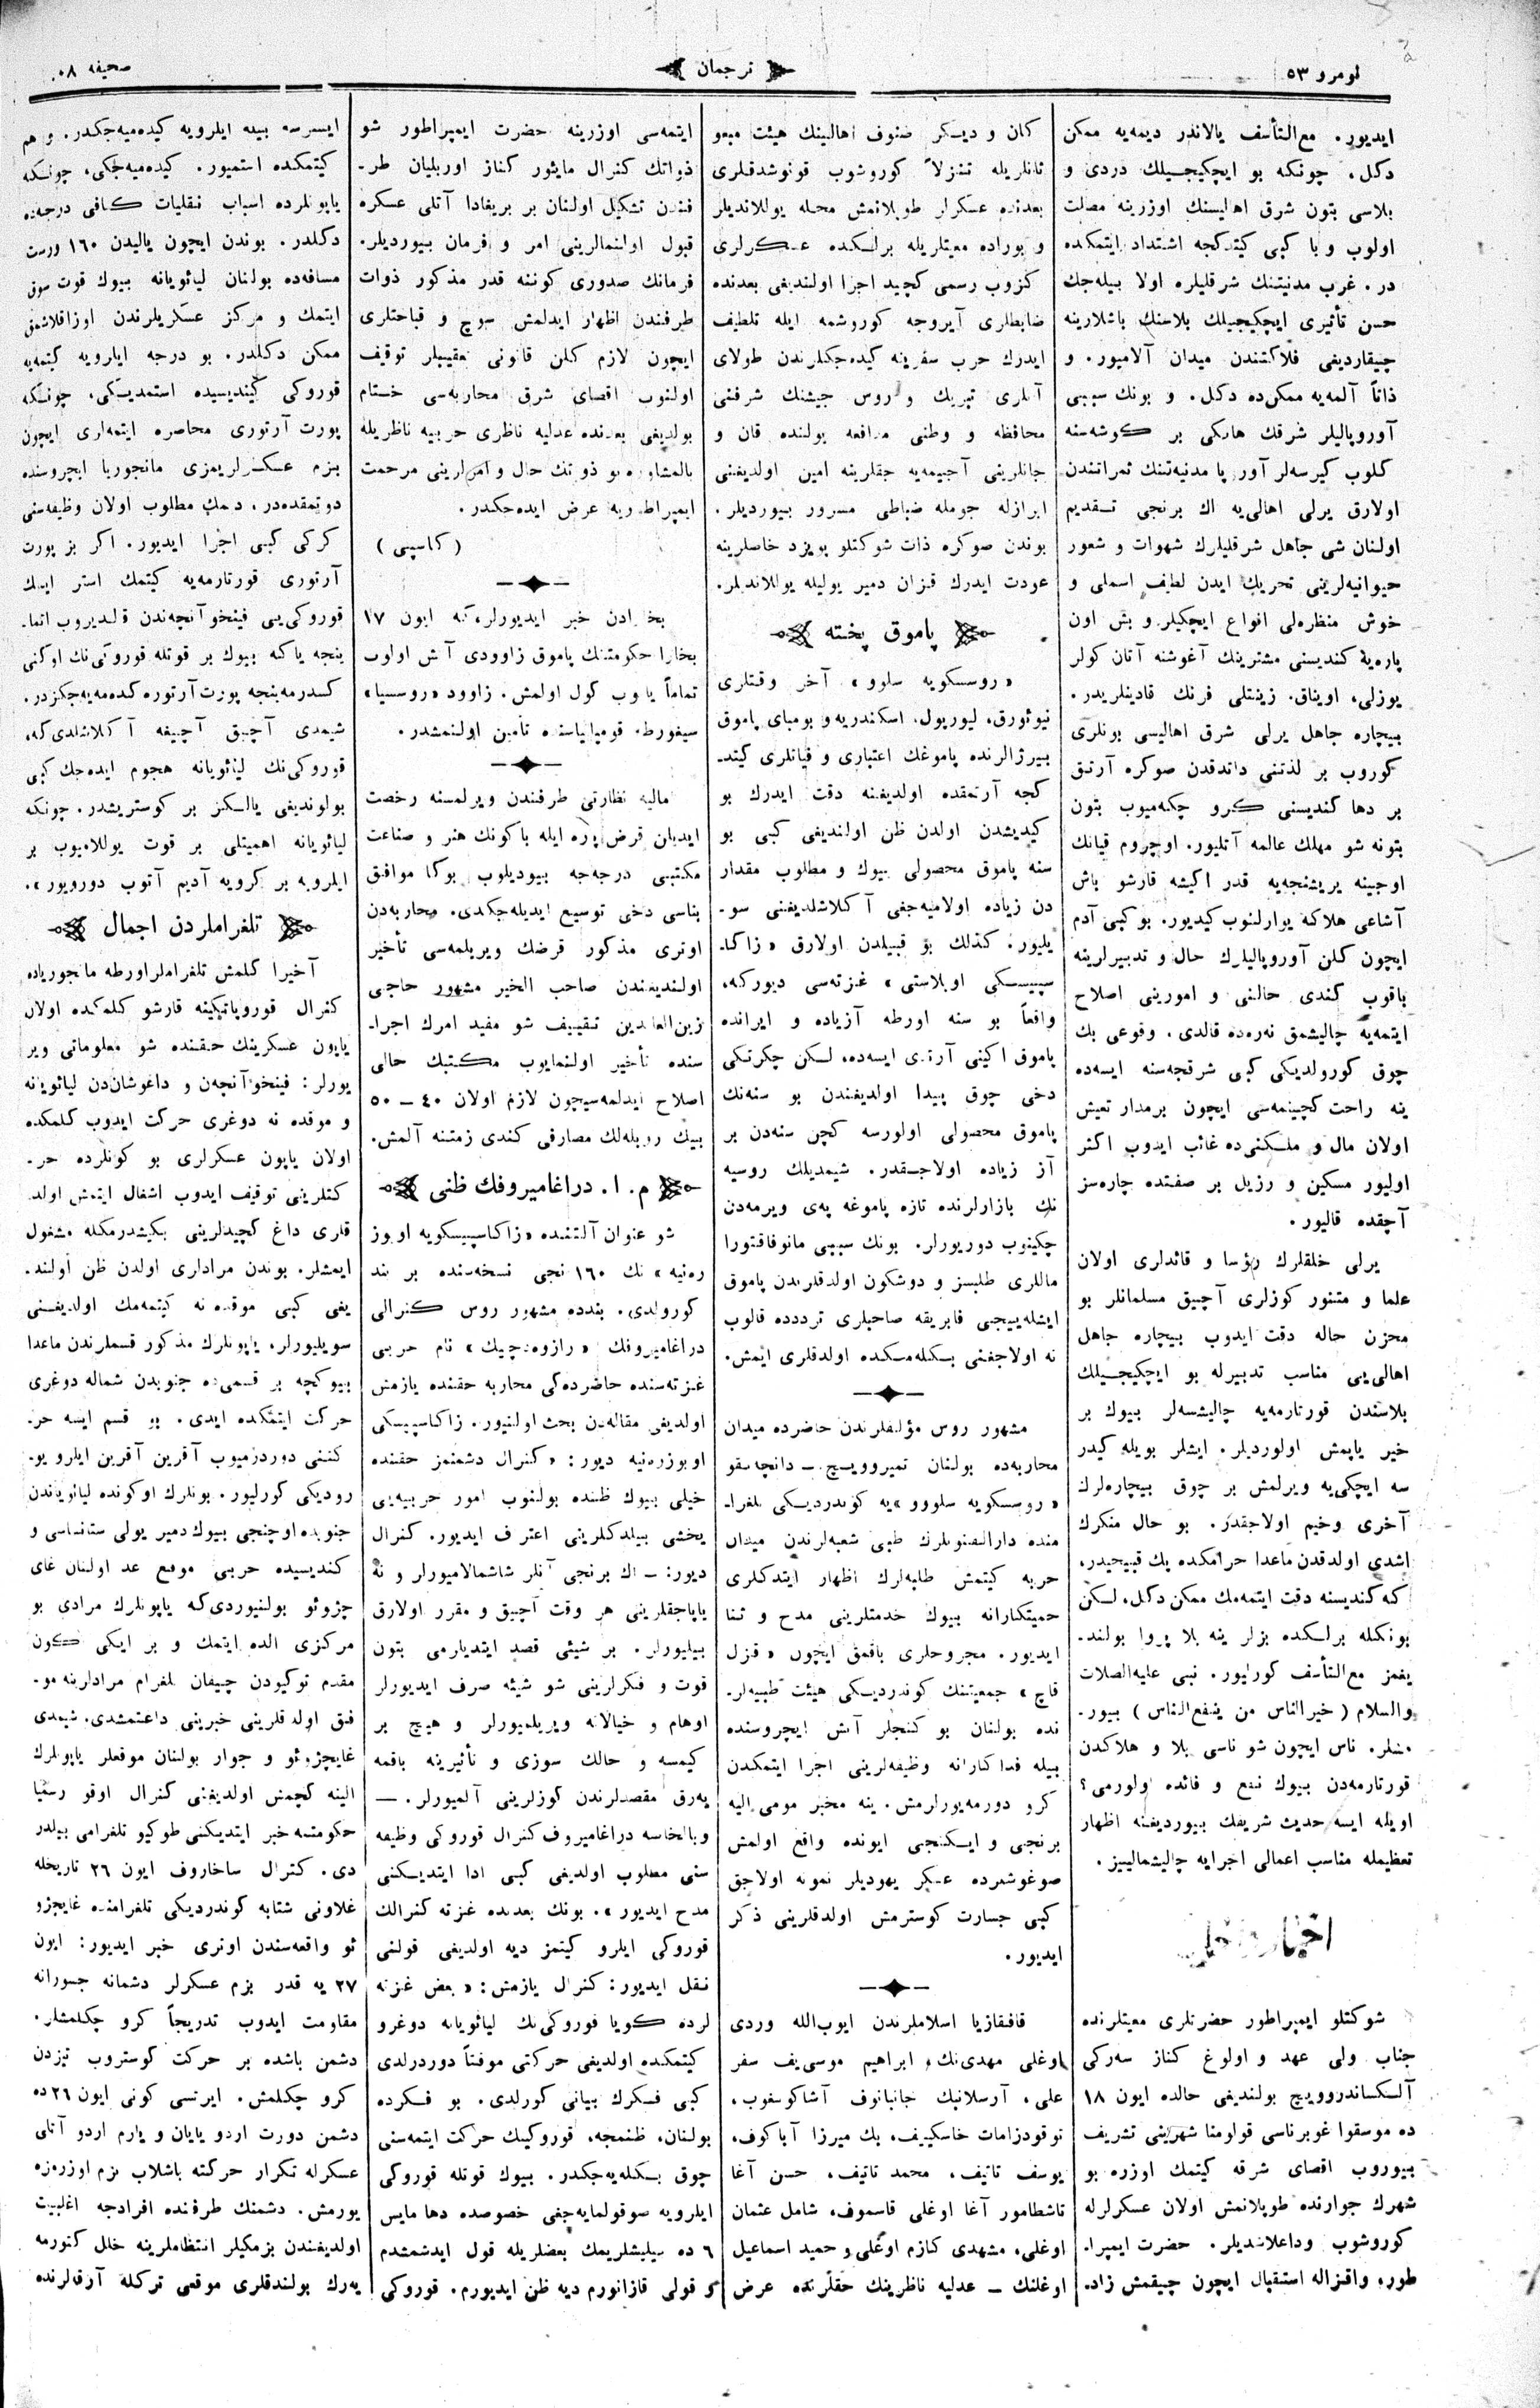 نومرو ٥٣
ترجمان
صحیفه ٠٨
ایدیور. مع‌التأسف یالاندر دیمه‌یه ممکن
دکل، چونکه بو ایچکیجیلك دردی و
بلاسی بتون شرق اهالیسنك اوزرینه مصلت
اولوب وبا کبی کیتدکجه اشتداد ایتمکده
در. غرب مدنیتنك شرقلیلره اولا بیله‌جك
حسن تأثیری ایچکیجیلك بلاسنك باشلارینه
چیقاردیغی فلاکتندن میدان آلامیور. و
ذاتاً آلمه‌یه ممکن‌ده دکل. و بونك سببی
آوروپالیلر شرقك هانکی بر کوشه‌سنه
کلوب کیرسه‌لر آوروپا مدنیه‌تنك ثمراتندن
اولارق یرلی اهالی‌یه اك برنجی تقدیم
اولنان شی جاهل شرقلیلرك شهوات و شعور
حیوانیه‌لرینی تحریك ایدن لطیف اسملی و
خوش منظره‌لی انواع ایچکیلر و بش اون
پاره‌یه کندیسنی مشترینك آغوشنه آتان کولر
یوزلی، اویناق. زینتلی فرنك قادینلریدر.
بیچاره جاهل یرلی شرق اهالیسی بونلری
کوروب بر لذتنی داتدقدن صوکره آرتق
بر دها کندیسنی کیرو چکه‌میوب بتون
بتونه شو مهلك عالمه آتلیور. اوچروم قیانك
اوجینه یریشنجه‌یه قدر اکیشه قارشو باش
آشاغی هلاکه یوارلنوب کیدیور. بو کبی آدم
ایچون کلن آوروپالیلرك حال و تدبیرلرینه
باقوب کندی حالنی و امورینی اصلاح
ایتمه‌یه چالیشمق نه‌ره‌ده قالدی. وقوعی بك
چوق کورولدیکی کبی شرقجه‌سنه ایسه‌ده
ینه راحت کچینمه‌سی ایچون برمدار تعیش
اولان مال و ملکنی‌ده غائب ایدوب اکثر
اولیور مسکین و رزیل بر صفتده چاره‌سز
آجقده قالیور.
یرلی خلقلرك رؤسا و قائدلری اولان
علما و متنور کوزلری آچیق مسلمانلر بو
محزن حاله دقت ایدوب بیچاره جاهل
اهالی‌یی مناسب تدبیرله بو ایچکیجیلك
بلاسندن قورتارمه‌یه چالیشسه‌لر بیوك بر
خیر یاپمش اولوردیلر. ایشلر بویله کیدر
سه ایچکی‌یه ویرلمش بر چوق بیچاره‌لرك
آخری وخیم اولاجقدر. بو حال منکرك
اشدی اولدقدن ماعدا حرامکده یك قبیحیدر،
که کندیسنه دقت ایتمه‌مك ممکن دکل، لکن
بونکله برلکده بزلر ینه بلا پروا بولند‌ـ
یغمز مع‌التأسف کورلیور. نبی علیه‌الصلات
والسلام ( خیرالناس من ینفع‌الناس ) بیور‌ـ
مشلر. ناس ایچون شو ناسی بلا و هلاکدن
قورتارمه‌دن بیوك نفع و فائده اولورمی؟
اویله ایسه حدیث شریفك بیوردیغنه اظهار
تعظیمله مناسب اعمالی اجرایه چالیشمالییز.
اخبار داخلیه
شوکتلو ایمپراطور حضرتلری معیتلرنده
جناب ولی عهد و اولوغ کناز سه‌رکی
آلکساندروویچ بولندیغی حالده ایون ١٨
ده موسقوا غوبرناسی قولومنا شهرینی تشریف
بیوروب اقصای شرقه کیتمك اوزره بو
شهرك جوارنده طوپلانمش اولان عسکرلرله
کوروشوب وداعلاشدیلر. حضرت ایمپرا‌ـ
طور، واقزاله استقبال ایچون چیقمش زاد‌ـ
کان و دیکر صنوف اهالینك هیئت مبعو
ثانلریله تنزلاً کوروشوب قونوشدقلری
بعدنده عسکرلر طوپلانمش محله یوللاندیلر
و بوراده معیتلریله برلکده عسکرلری
کزوب رسمی کچید اجرا اولندیغی بعدنده
ضابطلری آیروجه کوروشمه ایله تلطیف
ایدرك حرب سفرینه کیده‌جکلرندن طولای
آنلری تبریك و روس جیشنك شرفنی
محافظه و وطنی مدافعه یولنده قان و
جانلرینی آجیمه‌یه جقلرینه امین اولدیغنی
ابرازله جومله ضباطی مسرور بیوردیلر.
بوندن صوکره ذات شوکتلو پویزد خاصلرینه
عودت ایدرك قیزان دمیر یولیله یوللاندیلر.
پاموق پخته
« روسکویه سلوو » آخر وقتلری
نیوئورق، لیورپول، اسکندریه و بومبای پاموق
بیرژالرنده پاموغك اعتباری و فیاتلری کیتد‌ـ
کجه آرتمقده اولدیغنه دقت ایدرك بو
کیدیشدن اولدن ظن اولندیغی کبی بو
سنه پاموق محصولی بیوك و مطلوب مقدار
دن زیاده اولامیه‌جغی آکلاشلدیغنی سو‌ـ
یلیور. کذلك بو قبیلدن اولارق « زاکا‌ـ
سپیسکی اوبلاستی » غزته‌سی دیورکه،
واقعاً بو سنه اورطه آزیاده و ایرانده
پاموق اکینی آرتدی ایسه‌ده، لکن چکرتکی
دخی چوق پیدا اولدیغندن بو سنه‌نك
پاموق محصولی اولورسه کچن سنه‌دن بر
آز زیاده اولاجقدر. شیمدیلك روسیه
نك بازارلرنده تازه پاموغه په‌ی ویرمه‌دن
چکینوب دوریورلر. بونك سببی مانوفاقتورا
ماللری طلبسز و دوشکون اولدقلرندن پاموق
ایشله‌ییجی فابریقه صاحبلری ترددده قالوب
نه اولاجغنی بکله‌مکده اولدقلری ایمش.
مشهور روس مؤلفلرندن حاضرده میدان
محاربه‌ده بولنان نمیروویچ ـ دانچه‌نقو
« روسکویه سلووو » یه کوندردیکی تلغرا‌ـ
منده دارالفنونلرك طبی شعبه‌لرندن میدان
حربه کیتمش طلبه‌لرك اظهار ایتدکلری
حمیتکارانه بیوك خدمتلرینی مدح و ثنا
ایدیور. مجروحلری باقمق ایچون « قزل
قاچ » جمعیتنك کوندردیکی هیئت طبیه‌لر‌ـ
نده بولنان بو کنجلر آتش ایچروسنده
بیله فداکارانه وظیفه‌لرینی اجرا ایتمکدن
کرو دورمه‌یورلرمش. ینه مخبر مومی‌الیه
برنجی و ایکنجی ایونده واقع اولمش
صوغوشمرده عسکر یهودیلر نمونه اولاجق
کبی جسارت کوسترمش اولدقلرینی ذکر
ایدیور.
قافقازیا اسلاملرندن ایوب‌الله وردی
اوغلی مهدی‌نك، ابراهیم موسی‌یف سفر
علی، آرسلانبك جانبانوف آشاکوسفوب،
نوقودزامات خاسکییف، بك میرزا آباکوف،
یوسف تاتیف، محمد تاتیف، حسن آغا
تاشطامور آغا اوغلی قاسموف، شامل عثمان
اوغلی، مشهدی کازم اوغلی و حمید اسماعیل
اوغلنك ـ عدلیه ناظرینك حقلرنده عرض
ایتمه‌سی اوزرینه حضرت ایمپراطور شو
ذواتك کنرال مایئور کناز اوربلیان طر‌ـ
فندن تشکیل اولنان بر بریغادا آتلی عسکره
قبول اولنمالرینی امر و فرمان بیوردیلر.
فرمانك صدوری کوننه قدر مذکور ذوات
طرفندن اظهار ایدلمش سوچ و قباحتلری
ایچون لازم کلن قانونی تعقیبلر توقیف
اولنوب اقصای شرق محاربه‌سی ختام
بولدیغی بعدنده عدلیه ناظری حربیه ناظریله
بالمشاوره بو ذوتك حال و امرلرینی مرحمت
ایمپراطوریه عرض ایده‌جکدر.
( کاسپی )
بخارادن خبر ایدیورلر، که ایون ١٧
بخارا حکومتنك پاموق زاوودی آتش اولوب
تماماً یانوب کول اولمش. زاوود « روسسیا »
سیغورطه قومپانیاسنده تأمین اولنمشدر.
مالیه نظارتی طرفندن ویرلمسنه رخصت
ایدیان قرض پاره ایله باکونك هنر و صناعت
مکتبی درجه‌جه بیودیلوب بوکا موافق
بناسی دخی توسیع ایدیله‌جکدی. محاربه‌دن
اوتری مذکور قرضك ویریلمه‌سی تأخیر
اولندیغندن صاحب الخیر مشهور حاجی
زین‌العابدین تقییف شو مفید امرك اجرا‌ـ
سنده تأخیر اولنمایوب مکتبك حالی
اصلاح ایدلمه‌سیچون لازم اولان ٤٠ ـ ٥٠
بیك روبله‌لك مصارفی کندی زمتنه آلمش.
م. ا. دراغامیروفك ظنی
شو عنوان آلتنده « زاکاسپیسکویه اوبوز
ره‌نیه » نك ١٦٠ نجی نسخه‌سنده بر بند
کورولدی. بندده مشهور روس کنرالی
دراغامیروفك « رازوه‌دچیك » نام حربی
غزته‌سنده حاضرده‌کی محاربه حقنده یازمش
اولدیغی مقاله‌دن بحث اولنیور. زاکاسپیسکی
اوبوزره‌نیه دیور: « کنرال دشمنمز حقنده
خیلی بیوك ظنده بولنوب امور حربیه‌یی
یخشی بیلدکلرینی اعتراف ایدیور. کنرال
دیور: ـ اك برنجی آنلر شاشمالامیورلر و نه
یاپاجقلرینی هر وقت آچیق و مقرر اولارق
بیلیورلر. بر شیئی قصد ایتدیارمی بتون
قوت و فکرلرینی شو شیئه صرف ایدیورلر
اوهام و خیالاته ویریلمیورلر و هیچ بر
کیمسه و حالك سوزی و تأثیرینه باقمه
یه‌رق مقصدلرندن کوزلرینی آلمیورلر. —
وبالخاسه دراغامیروف کنرال قوروکی وظیفه
سنی مطلوب اولدیغی کبی ادا ایتدیکنی
مدح ایدیور ». بونك بعدنده غزته کنرالك
قوروکی ایلرو کیتمز دیه اولدیغی قولنی
نقل ایدیور: کنرال یازمش: « بعض غزته
لرده کویا قوروکی‌نك لیائویانه دوغرو
کیتمکده اولدیغی حرکتی موقتاً دوردرلدی
کبی فکرك بیانی کورلدی. بو فکرده
بولنان، ظنمجه، قوروکینك حرکت ایتمه‌سنی
چوق بکله‌یه‌جکدر. بیوك قوتله قوروکی
ایلرویه صوقولمایه‌جغی خصوصده دها مایس
٦ ده بیلیشلریمك بعضلریله قول ایدشمشدم
و قولی قازانورم دیه ظن ایدیورم. قوروکی
ایسترسه بیله ایلرویه کیده‌میه‌جکدر. و هم
کیتمکده استمیور. کیده‌میه‌جکی، چونکه
یاپونلرده اسباب نقلیات کافی درجه‌ده
دکلدر. بوندن ایچون یالیدن ١٦٠ ورست
مسافه‌ده بولنان لیائویانه بیوك قوت سوق
ایتمك و مرکز عسکریلرندن اوزاقلاشمق
ممکن دکلدر. بو درجه ایلرویه کیتمه‌یه
قوروکی کندیسیده استمدیکی، چونکه
پورت آرتوری محاصره ایتمه‌لری ایچون
بزم عسکرلریمزی مانجوریا ایچروسنده
دوتمقده‌در، دیمك مطلوب اولان وظیفه‌سنی
کرکی کبی اجرا ایدیور. اکر بز پورت
آرتوری قورتارمه‌یه کیتمك استر ایسك
قوروکی‌یی فینخوآنچه‌ندن قالدیروب اتما‌ـ
ینجه یاکه بیوك بر قوتله قوروکی‌نك اوکنی
کسدرمه‌ینجه پورت آرتوره کیده‌میه‌جکزدر.
شیمدی آچیق آچیغه آکلاشلدی‌که،
قوروکی‌نك لیائویانه هجوم ایده‌جك کبی
بولوندیغی یالکز بر کوستریشدر. چونکه
لیائویانه اهمیتلی بر قوت یوللامیوب بر
ایلرویه بر کرویه آدیم آتوب دورویور ».
تلغراملردن اجمال
آخیرا کلمش تلغراملر اورطه مانجوریاده
کنرال قوروپاتکینه قارشو کلمکده اولان
یاپون عسکرینك حقنده شو معلوماتی ویر
یورلر: فینخوآنچه‌ن و داغوشان‌دن لیائویانه
و موقده نه دوغری حرکت ایدوب کلمکده
اولان یاپون عسکرلری بو کونلرده حر‌ـ
کتلرینی توقیف ایدوب اشغال ایتمش اولد
قلری داغ کچیدلرینی بکیتدرمکله مشغول
ایمشلر. بوندن مرادلری اولدن ظن اولند‌ـ
یغی کبی موقده نه کیتمه‌مك اولدیغنی
سویلیورلر، یاپونلرك مذکور قسملرندن ماعدا
بیوکچه بر قسمی‌ده جنوبدن شماله دوغری
حرکت ایتمکده ایدی. بو قسم ایسه حر‌ـ
کتنی دوردرمیوب آقرین آقرین ایلرو یو‌ـ
رودیکی کورلیور. بونلرك اوکونده لیائویاندن
جنوبده اوچنجی بیوك دمیر یولی ستانساسی و
کندیسیده حربی موقع عد اولنان غای
چژوئو بولنیوردی‌که یاپونلرك مرادی بو
مرکزی الده ایتمك و بر ایکی کون
مقدم توکیودن چیقان تلغرام مرادلرینه مو‌ـ
فق اولدقلرینی خبرینی داغتمشدی. شیمدی
غایچژوئو و جوار بولنان موقعلر یاپونلرك
الینه کچمش اولدیغنی کنرال اوقو رسمیا
حکومتنه خبر ایتدیکنی طوکیو تلغرامی بیلدر
دی. کنرال ساخاروف ایون ٢٦ تاریخله
غلاونی شتابه کوندردیکی تلغرامنده غایچژو
ئو واقعه‌سندن اوتری خبر ایدیور: ایون
٢٧ یه قدر بزم عسکرلر دشمانه جسورانه
مقاومت ایدوب تدریجاً کرو چکلمشلر.
دشمن باشده بر حرکت کوستروب تیزدن
کرو چکلمش. ایرتسی کونی ایون ٢٦ ده
دشمن دورت اردو یایان و یارم اردو آتلی
عسکرله تکرار حرکته باشلاب بزم اوزره‌زه
یورمش. دشمنك طرفنده افرادجه اغلبیت
اولدیغندن بزمکیلر انتظاملرینه خلل کتورمه
یه‌رك بولندقلری موقعی ترکله آرقه‌لرنده